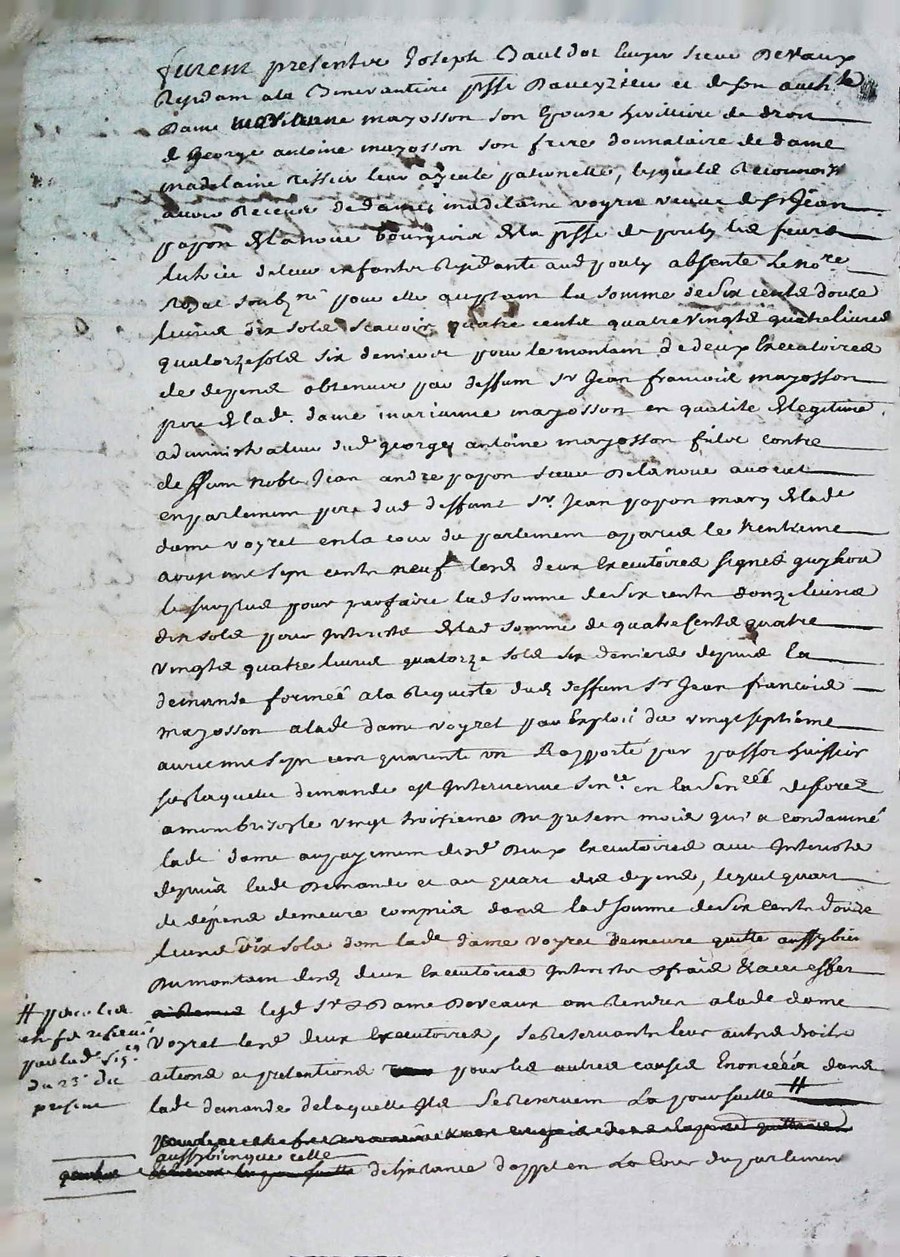 furent presentes Joseph Bauldot Ecuyer sieur Devaux
Residant ala Benevantiere psse Daveyzieu et de son authte
Dame marianne mayosson son Epouse heritiere de droit
de George antoine mayosson son frere donnataire de dame
madelaine Ressier leur ayeule paternelle, lesquels Reconnois
avoir Receus de dame madelaine voyret veuve de sr Jean
papon delanoue bourgeois de la psse de pouly les feurs
tutrice de leurs enfants Residante aud pouly absente le nore
Royal soubzne pour elle acceptant la somme de six cents douze
livres dix sols scavoir quatre cents quatre vingts quatre livres
quatorze sols six deniers pour le montant de deux Executoires
de depens obtenus par deffunt sr Jean francois mayosson
pere de lade dame marianne mayosson en qualite de legitime
administrateur dud george antoine mayosson fils contre
deffunt noble Jean andre papon sieur Delanoue avocat
en parlement pere dud deffunt sr. Jean papon mary de lade
dame voyret en la cour du parlement a paris le trentieme
aoust mil sept cents neuf lesd deux Executoires signes guyhou
le surplus pour parfaire lad somme de six cents douze livres
dix sols pour Interets de lad somme de quatre cents quatre
vingts quatre livres quatorze sols six deniers depuis la
demande formeé a la Requete dud deffunt sr Jean francois
mayosson a lade dame voyret par Exploit du vingt septieme
mil sept cent quarente un Rapporté par huissier
sur laquelle demande est Intervenue sence en la senéé de forez
a montbrison le vingt troisieme du present mois qui a condamné
lade dame au payement desd Deux Executoires avec Interets
depuis lade Demande et au quart des depens, lequel quart
de dépens demeure compris dans lad somme de six cents douze
livres dix sols dont lade dame voyret demeure quitte aussy bien
du montant desd deux Executoires Interets et frais Et a cet effet
lesd sr et Dame Devaux ont Rendu a lade dame
voyret lesd deux Executoires, se Reservants leurs autres droits
actions et pretentions pour les autres causes Enoncéés dans
lade demande de laquelle Ils se Reservent La poursuitte #
aussy bien que celle
de linstance d'appel en La Cour du parlement
# pour les
par lade
du 23e du
present